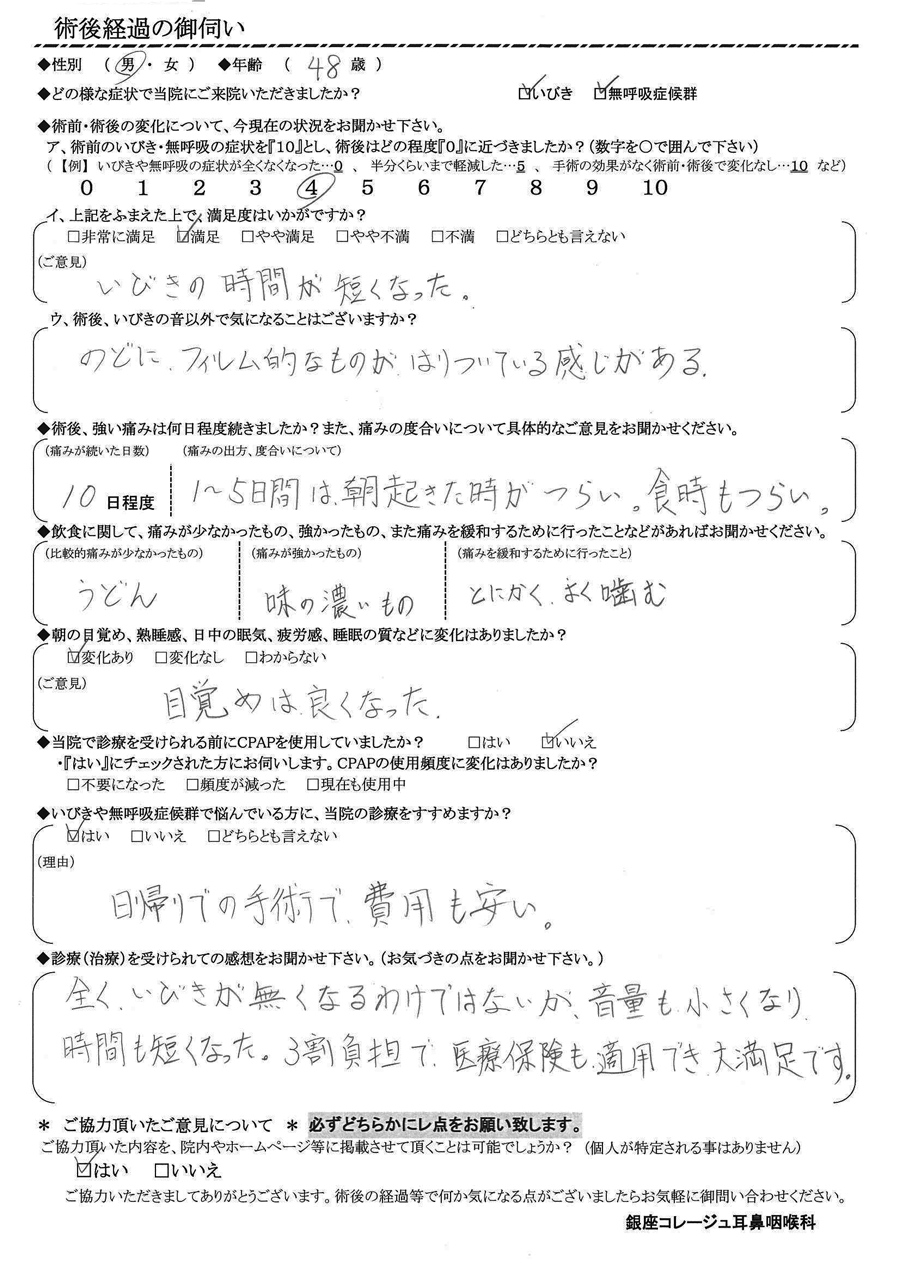 術後経過の御伺い
◆性別 ( 男 ・ 女 ) ◆年齢 ( 48 歳 )
◆どの様な症状で当院にご来院いただきましたか? ☑いびき ☑無呼吸症候群
◆術前・術後の変化について、今現在の状況をお聞かせ下さい。
ア、術前のいびき・無呼吸の症状を『10』とし、術後はどの程度『0』に近づきましたか?(数字を○で囲んで下さい)
(【例】 いびきや無呼吸の症状が全くなくなった…0 、 半分くらいまで軽減した…5 、 手術の効果がなく術前・術後で変化なし…10 など)
0 1 2 3 4 5 6 7 8 9 10
イ、上記をふまえた上で、満足度はいかがですか?
□非常に満足 ☑満足 □やや満足 □やや不満 □不満 □どちらとも言えない
(ご意見)
いびきの時間が短くなった。
ウ、術後、いびきの音以外で気になることはございますか?
のどに、フィルム的なものが、はりついている感じがある。
◆術後、強い痛みは何日程度続きましたか?また、痛みの度合いについて具体的なご意見をお聞かせください。
(痛みが続いた日数) (痛みの出方、度合いについて)
10 日程度 1〜5日間は、朝起きた時が つらい。食時もつらい。
◆飲食に関して、痛みが少なかったもの、強かったもの、また痛みを緩和するために行ったことなどがあればお聞かせください。
(比較的痛みが少なかったもの) (痛みが強かったもの) (痛みを緩和するために行ったこと)
うどん 味の濃いもの とにかく、よく噛む
◆朝の目覚め、熟睡感、日中の眠気、疲労感、睡眠の質などに変化はありましたか?
☑変化あり □変化なし □わからない
(ご意見)
目覚めは、良くなった。
◆当院で診療を受けられる前にCPAPを使用していましたか? □はい ☑いいえ
・『はい』にチェックされた方にお伺いします。CPAPの使用頻度に変化はありましたか?
□不要になった □頻度が減った □現在も使用中
◆いびきや無呼吸症候群で悩んでいる方に、当院の診療をすすめますか?
☑はい □いいえ □どちらとも言えない
(理由)
日帰りでの手術で、費用も安い。
◆診療(治療)を受けられての感想をお聞かせ下さい。(お気づきの点をお聞かせ下さい。)
全く、いびきが無くなるわけではないが、音量も小さくなり、
時間も短くなった。3割負担で、医療保険も、適用でき、大満足です。
* ご協力頂いたご意見について * 必ずどちらかにレ点をお願い致します。
ご協力頂いた内容を、院内やホームページ等に掲載させて頂くことは可能でしょうか? (個人が特定される事はありません)
☑はい □いいえ
ご協力いただきましてありがとうございます。術後の経過等で何か気になる点がございましたらお気軽に御問い合わせください。
銀座コレージュ耳鼻咽喉科